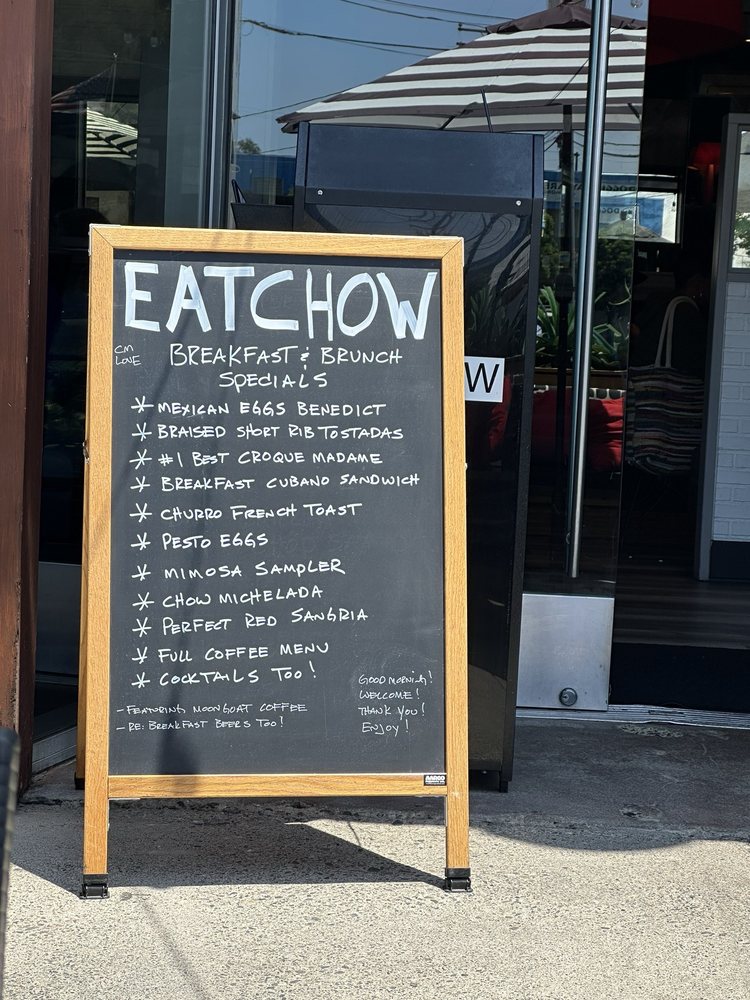 EATCHOW
CM
LOVE
BREAKFAST & BRUNCH
SPECIALS
* MEXICAN EGGS BENEDICT
* BRAISED SHORT RIB TOSTADAS
* #1 BEST CROQUE MADAME
* BREAKFAST CUBANO SANDWICH
* CHURRO FRENCH TOAST
* PESTO EGGS
* MIMOSA SAMPLER
* CHOW MICHELADA
* PERFECT RED SANGRIA
* FULL COFFEE MENU
* COCKTAILS TOO!
- FEATURING MOONGOAT COFFEE
- RE: BREAKFAST BEERS TOO!
GOOD MORNING!
WELCOME!
THANK YOU!
ENJOY!
AARCO
W